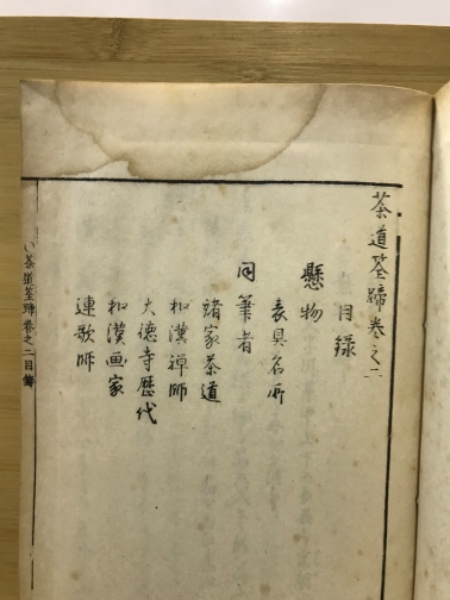 茶道筌蹄巻之二
目録
懸物
表具名所
同筆者
諸家茶道
和漢禅師
大徳寺歴代
和漢画家
連歌師
茶道筌蹄巻之二目録